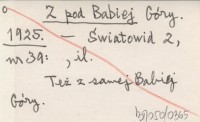 Z pod Babiej Góry.
1925. — Światowid 2,
nr 39: , il.
Też z samej Babiej
Góry.